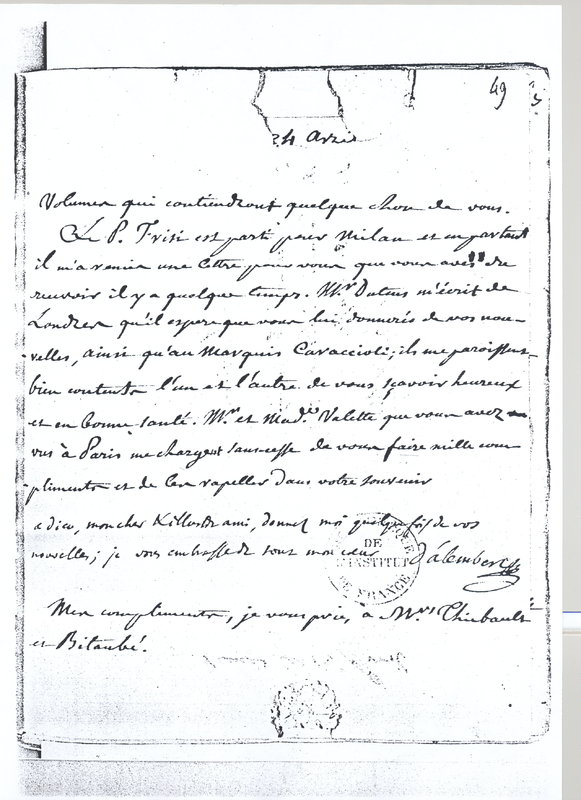 49
24 Avril
Volumes qui contiendront quelque chose de vous.
Le P. Frisi est parti pour Milan et en partant
il m'a remis une lettre pour vous que vous avés du
recevoir il y a quelque temps. Mr Dutens m'écrit de
Londres qu'il espere que vous lui donnerés de vos nou-
velles, ainsi qu'au Marquis Caraccioli; ils me paroissent
bien contents l'un et l'autre de vous sçavoir heureux
et en bonne santé. Mr et Made Valette que vous avez
vus à Paris me chargent sans cesse de vous faire mille com
pliments et de les rapeller dans votre souvenir
adieu, mon cher Killustre ami, donnez moi quelque fois de vos
nouvelles; je vous embrasse de tout mon cœur D'alembert
DE
L'INSTITUT
DE FRANCE
Mes compliments, je vous prie, a Mrs Thiebault
et Bitaubé.